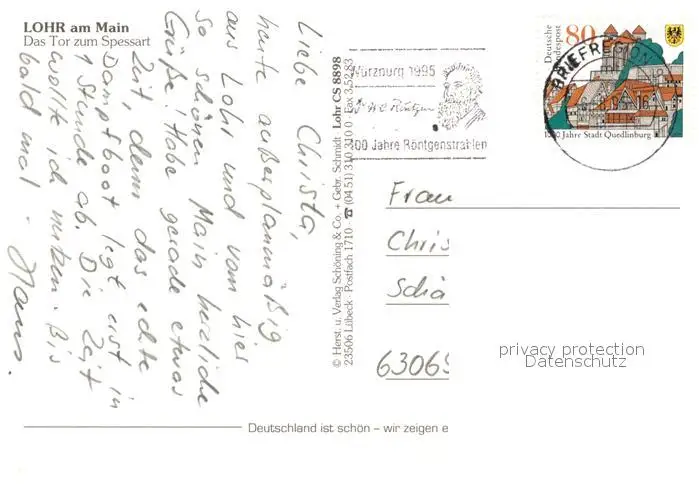 LOHR am Main
Das Tor zum Spessart
Liebe Christa,
heute außerplanmäßig
aus Lohr und vom hier
so schönen Main herzliche
Grüße! Habe gerade etwas
Zeit, denn das echte
Dampfboot legt erst in
1 Stunde ab. Die Zeit
wollte ich nutzen. Bis
bald mal - Hans.
© Herst. u. Verlag Schöning & Co. + Gebr. Schmidt Lohr CS 8898
23506 Lübeck · Postfach 1710 · ☎ (04 51) 3 10 31 0 Fax 3 52 83
Würzburg 1995
W C Röntgen
100 Jahre Röntgenstrahlen
BRIEFREGION
Deutsche
Bundespost
80
1000 Jahre Stadt Quedlinburg
Frau
Chris
Schä
63069
privacy protection
Datenschutz
Deutschland ist schön – wir zeigen e